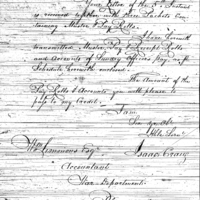 Your Letter of the 3d Instant
is received together with three Packets Con-
taining Muster & Pay Rolls.
I have herewith
transmitted Muster, Pay & Receipt Rolls
and Accounts of Sundry Officers Pay &c
Schedule herewith enclosed.
The Amount of the
Pay Rolls & Accounts you will please to
pass to my Credit.
I am
Sir
Isaac Craig
Wm Simmons Esqr
Accountant
War Department